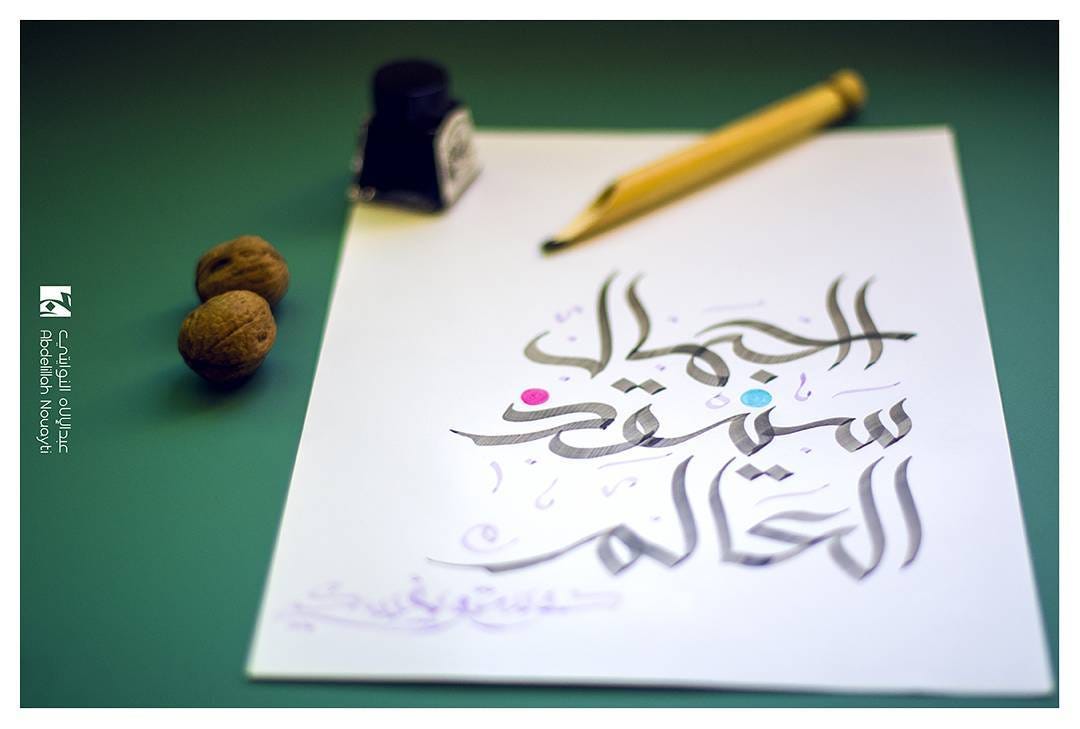 الجمال
سينقذ
العالم
دوستويفسكي
عبدالإله النوايتي
Abdelillah Nouayti